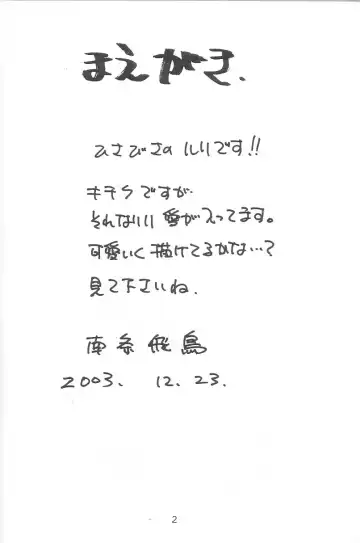 まえがき.
ひさびさのルリです!!
キチクですが
それなりに愛が入ってます。
可愛いく描けてるかな…?
見て下さいね.
南条飛鳥
2003. 12.23.
2